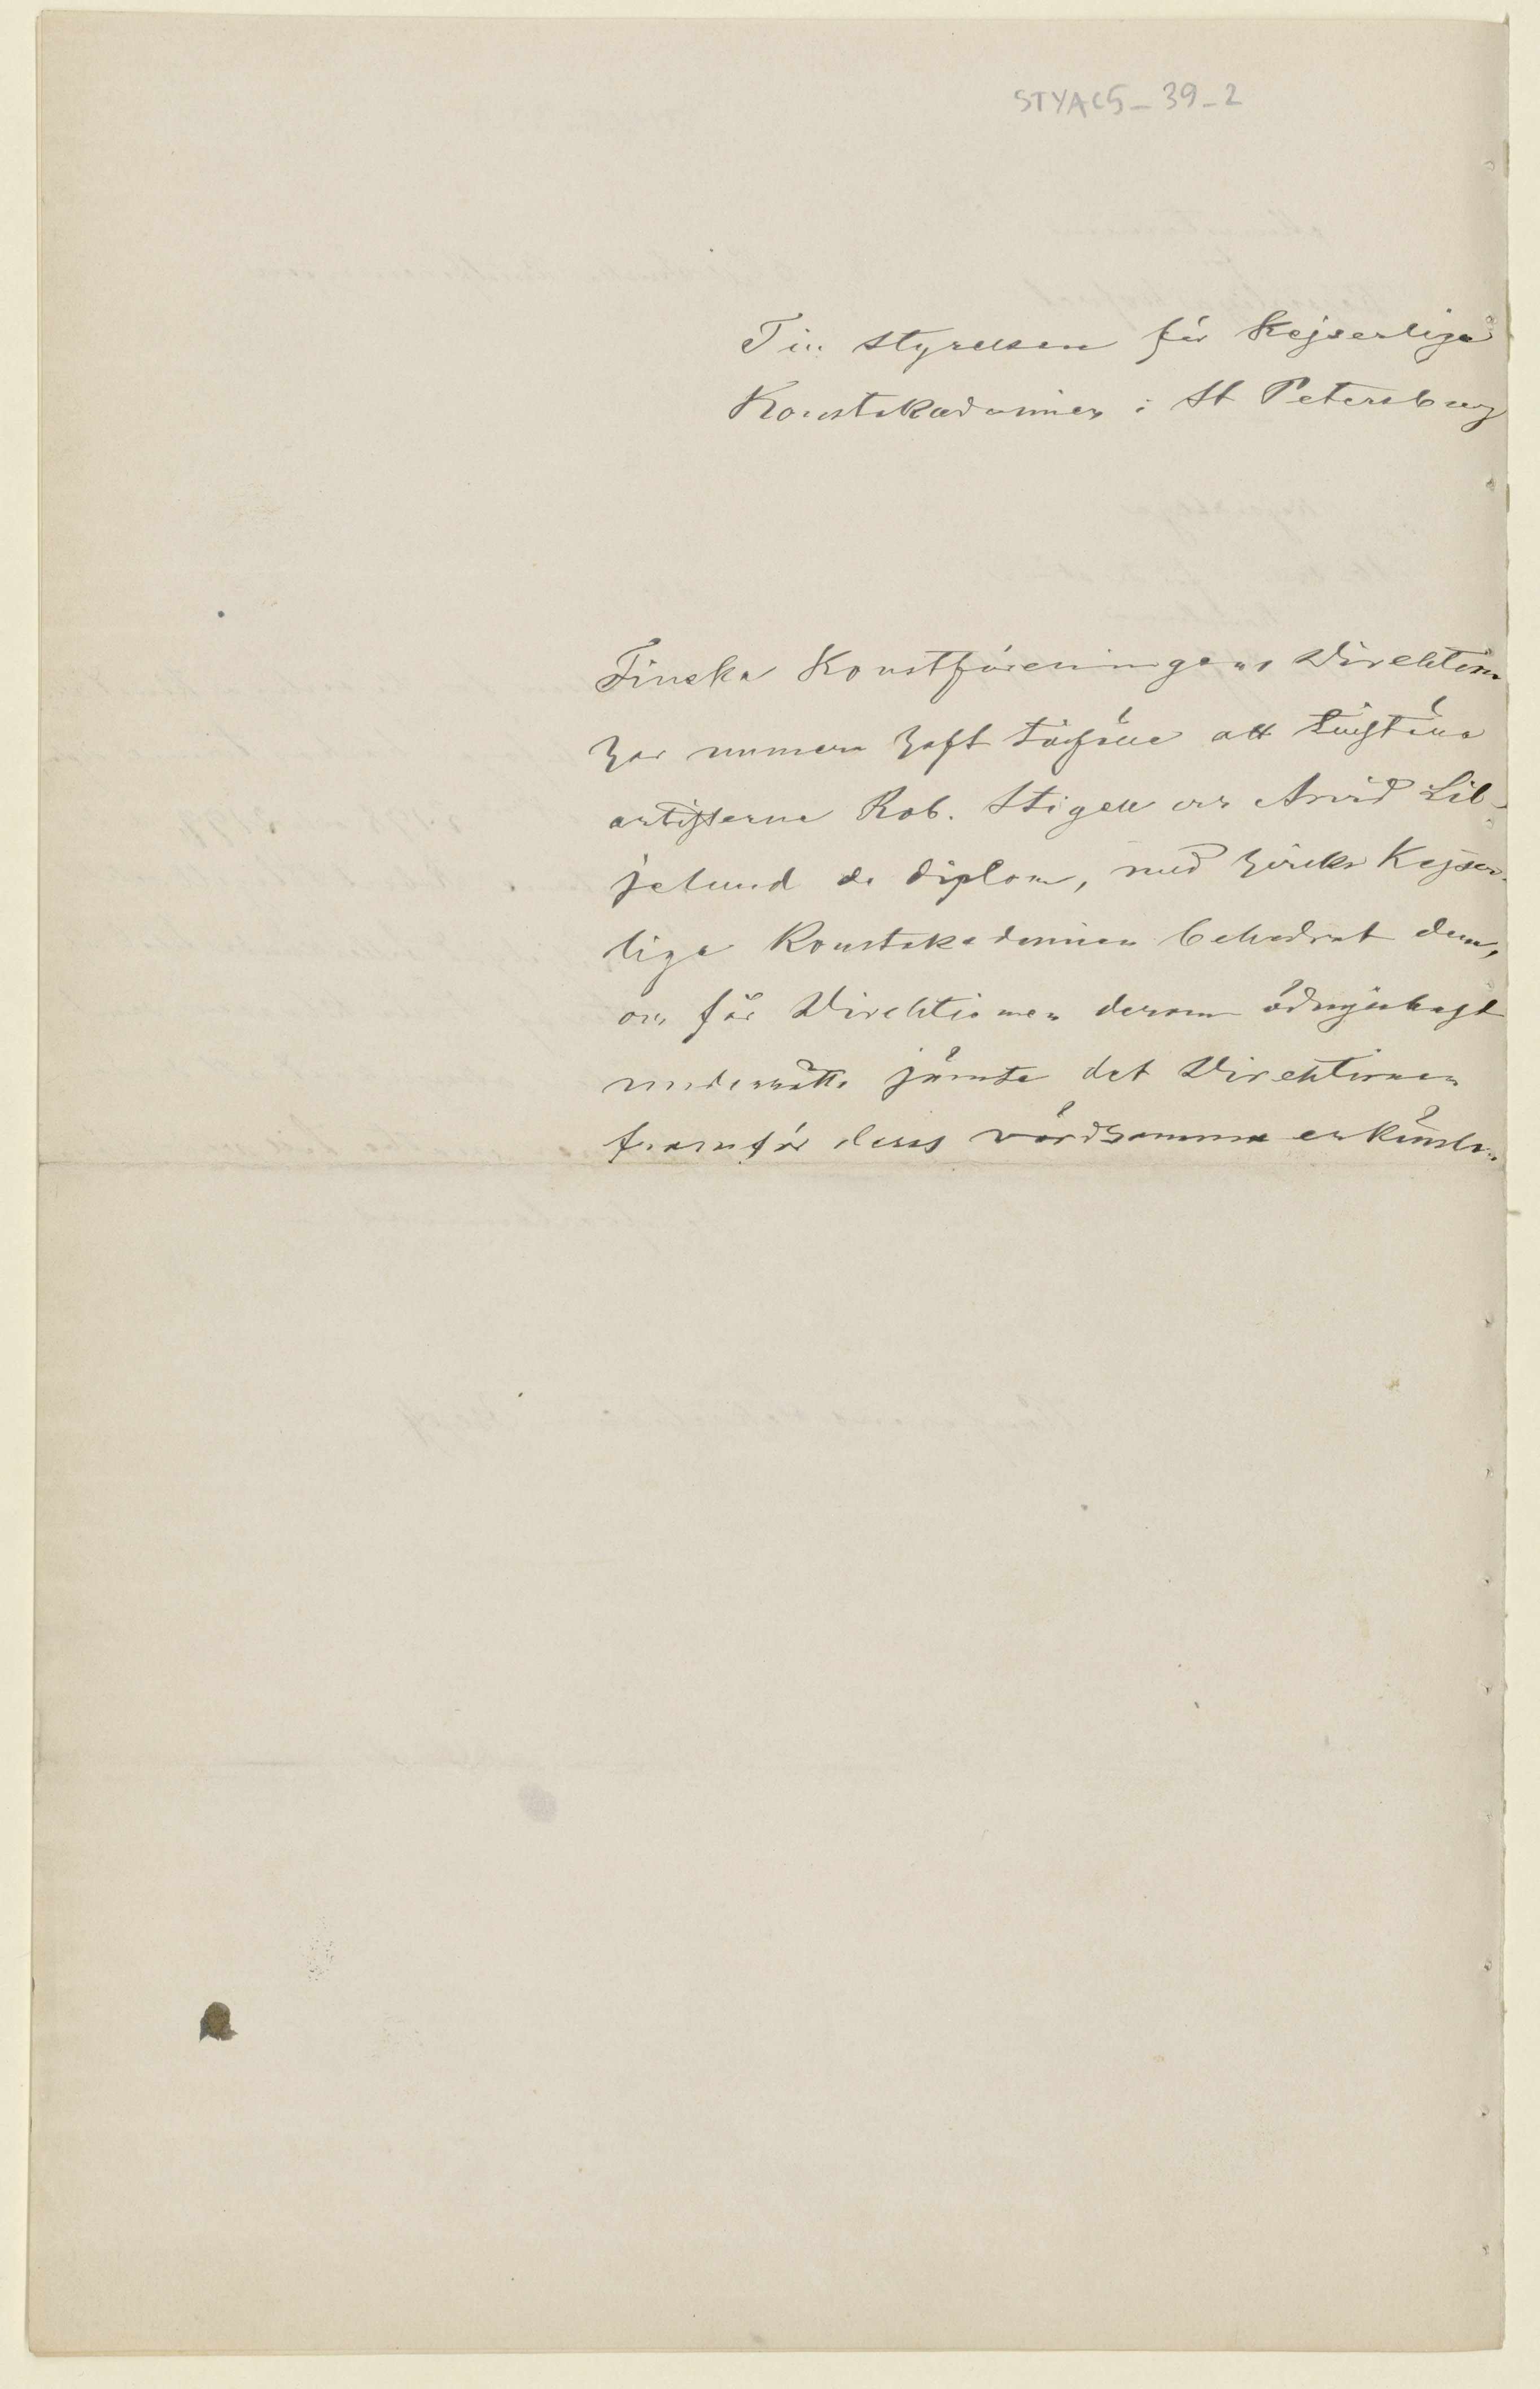 STYAC5_39_2
Till styrelsen för Kejserliga
Konstakademien i St Petersburg
Finska Konstföreningens Direktion
har numera haft tillfälle att tillställa
artisterna Rob. Stigell och Arvid Lil-
jelund de diplom, med hvilka Kejser-
liga Konstakademien behedrat dem,
och får Direktionen derom ödmjukast
underrätta jämte det Direktionen
framför dess vördsamma erkänsla.